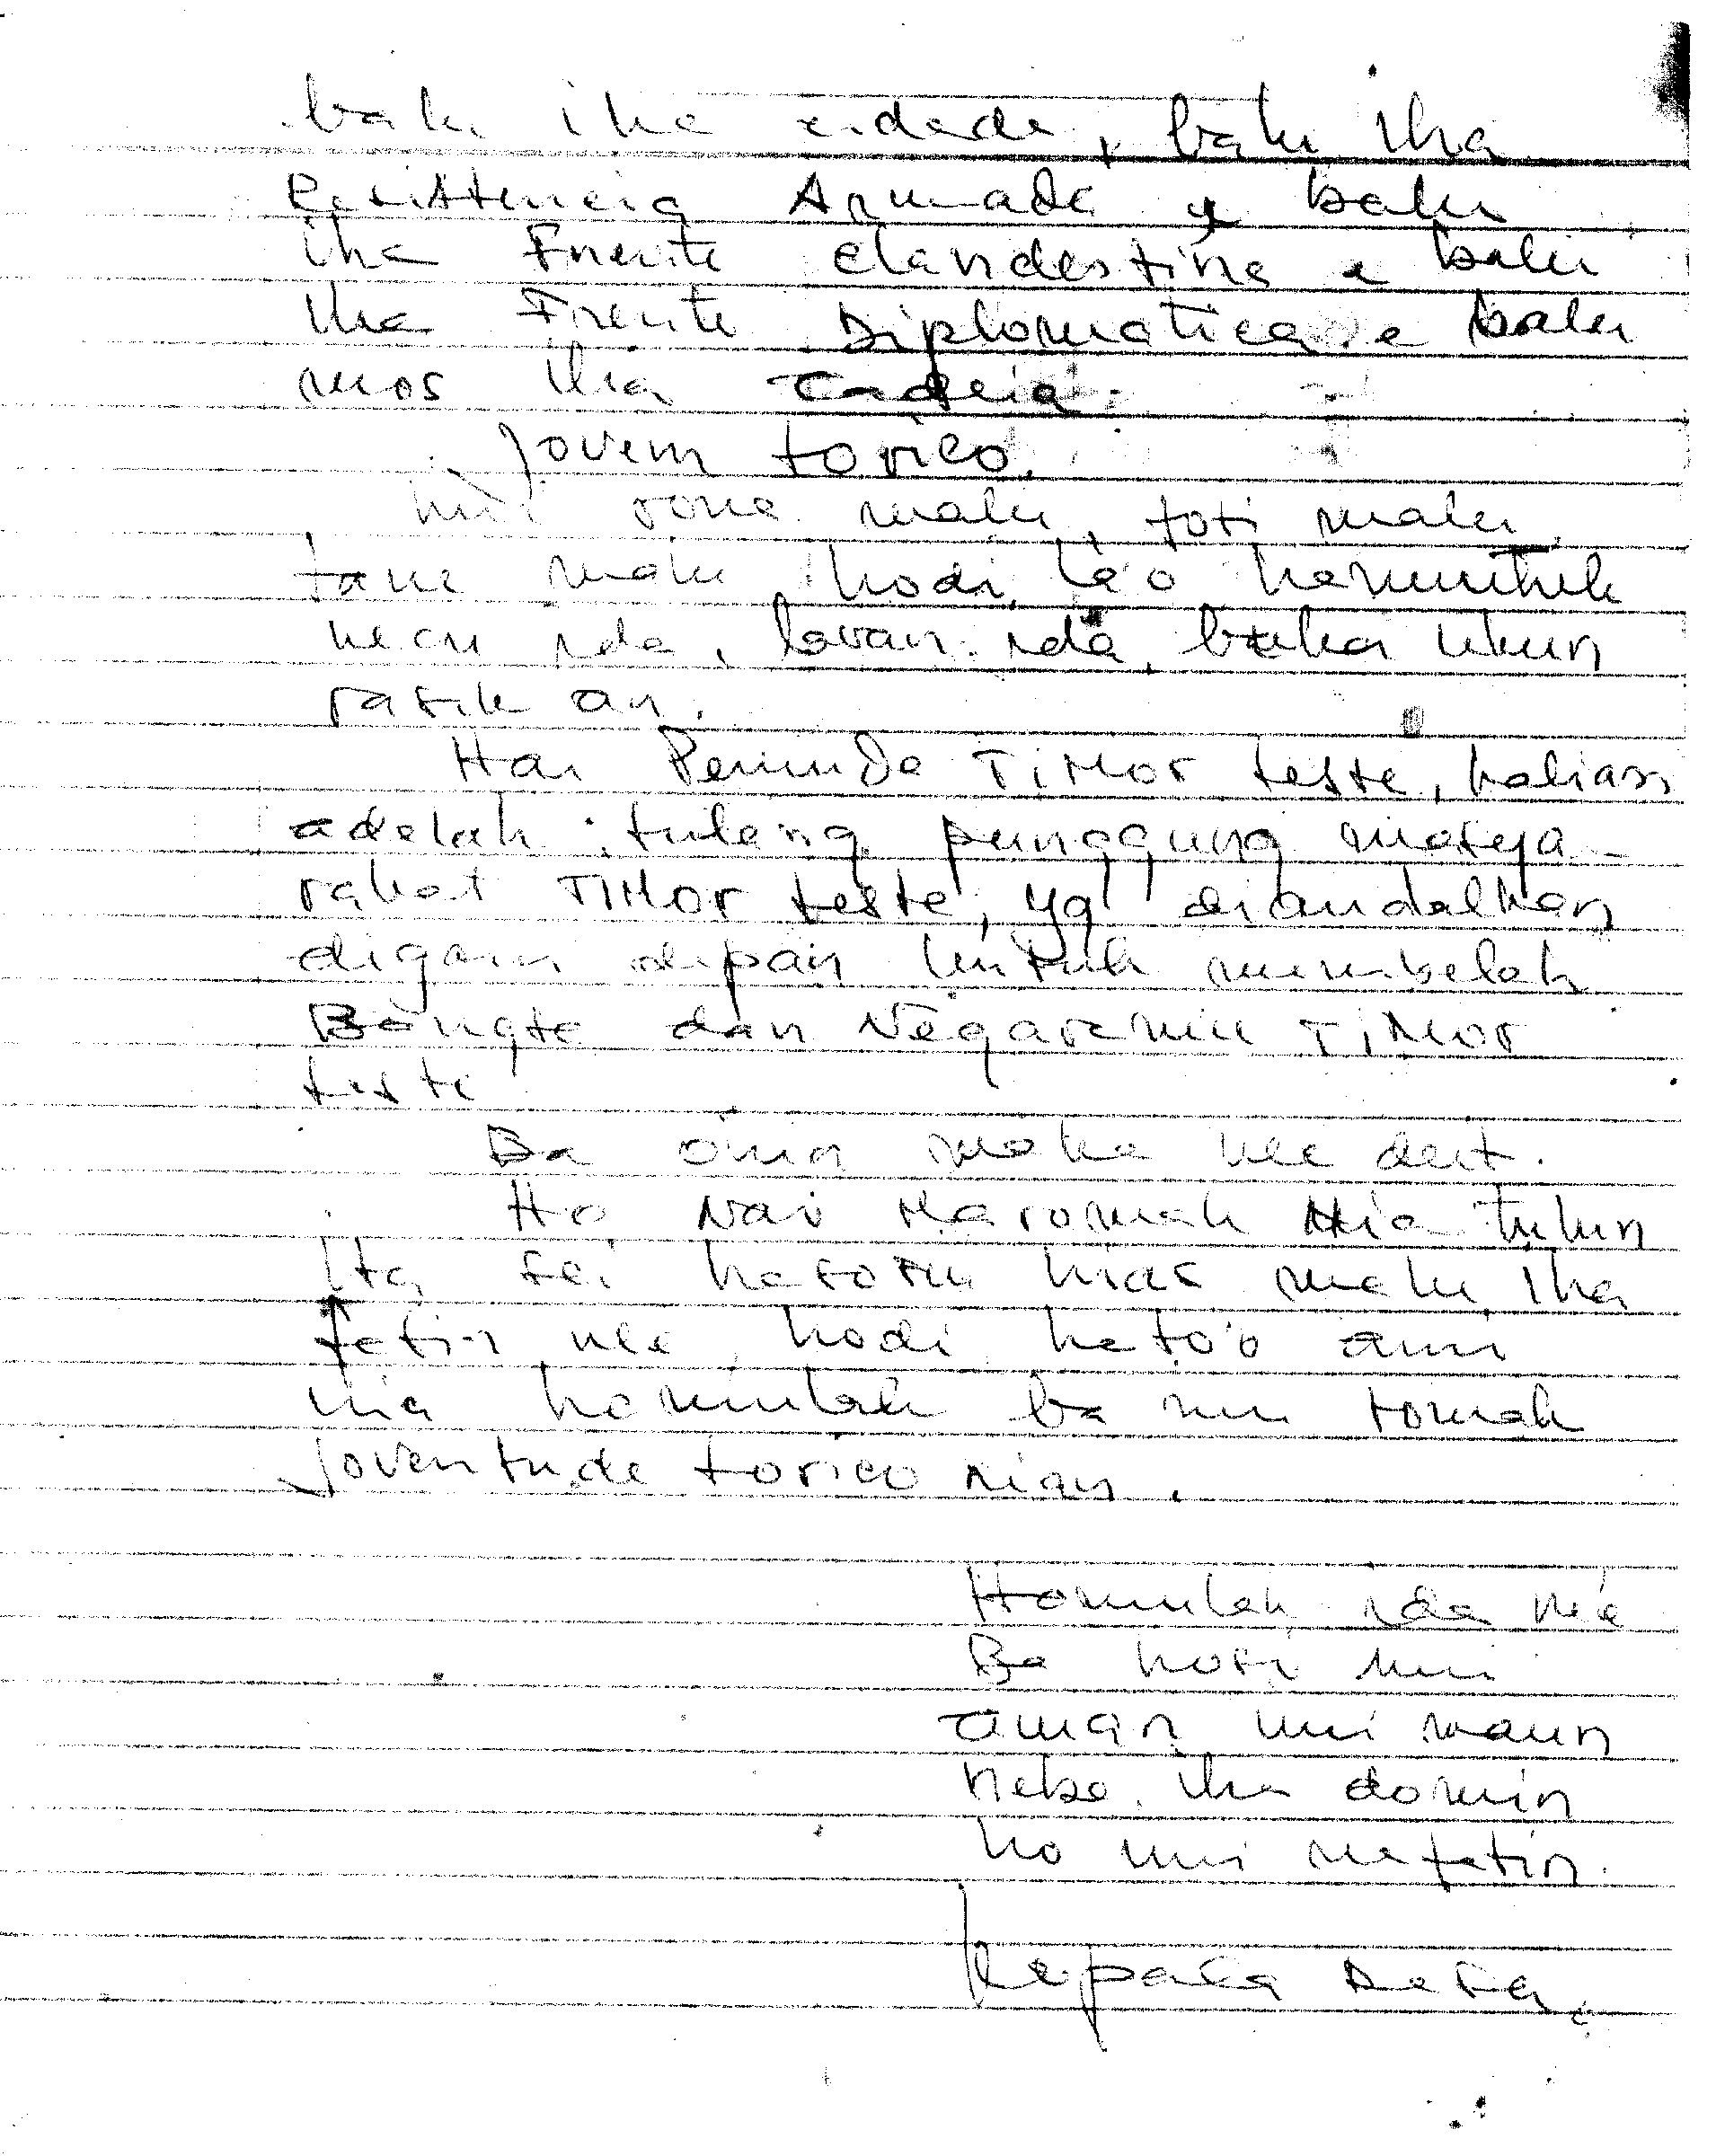 balu iha cidade, balu iha
Resistencia Armada e balu
iha Frente clandestina e balu
iha Frente Diplomatica e balu
mos iha Cadeia.
Jovem lorico,
mi rona malu, foti malu,
tane malu hodi la'o hamutuk
neon ida, lawan ida, buka ukun
rasik an.
Hai Pemuda TiMor Leste, kalian
adalah tulang punggung masya-
rakat TIMor Leste, yg diandalkan
digaris depan untuk membelah
Bangsa dan Negaramu TiMor
Leste
Ba oin maka nee deit.
Ho Nai Maromak Nia tulun
Ita sei hasoru hias malu iha
fatin nee hodi hato'o ami
nia homulak ba mi tomak
Joventude lorico nian.
Homulak ida né'e
Ba hosi mi
aman mi maun
nebe iha domin
ho mi nafatin.
Kepala Desa.